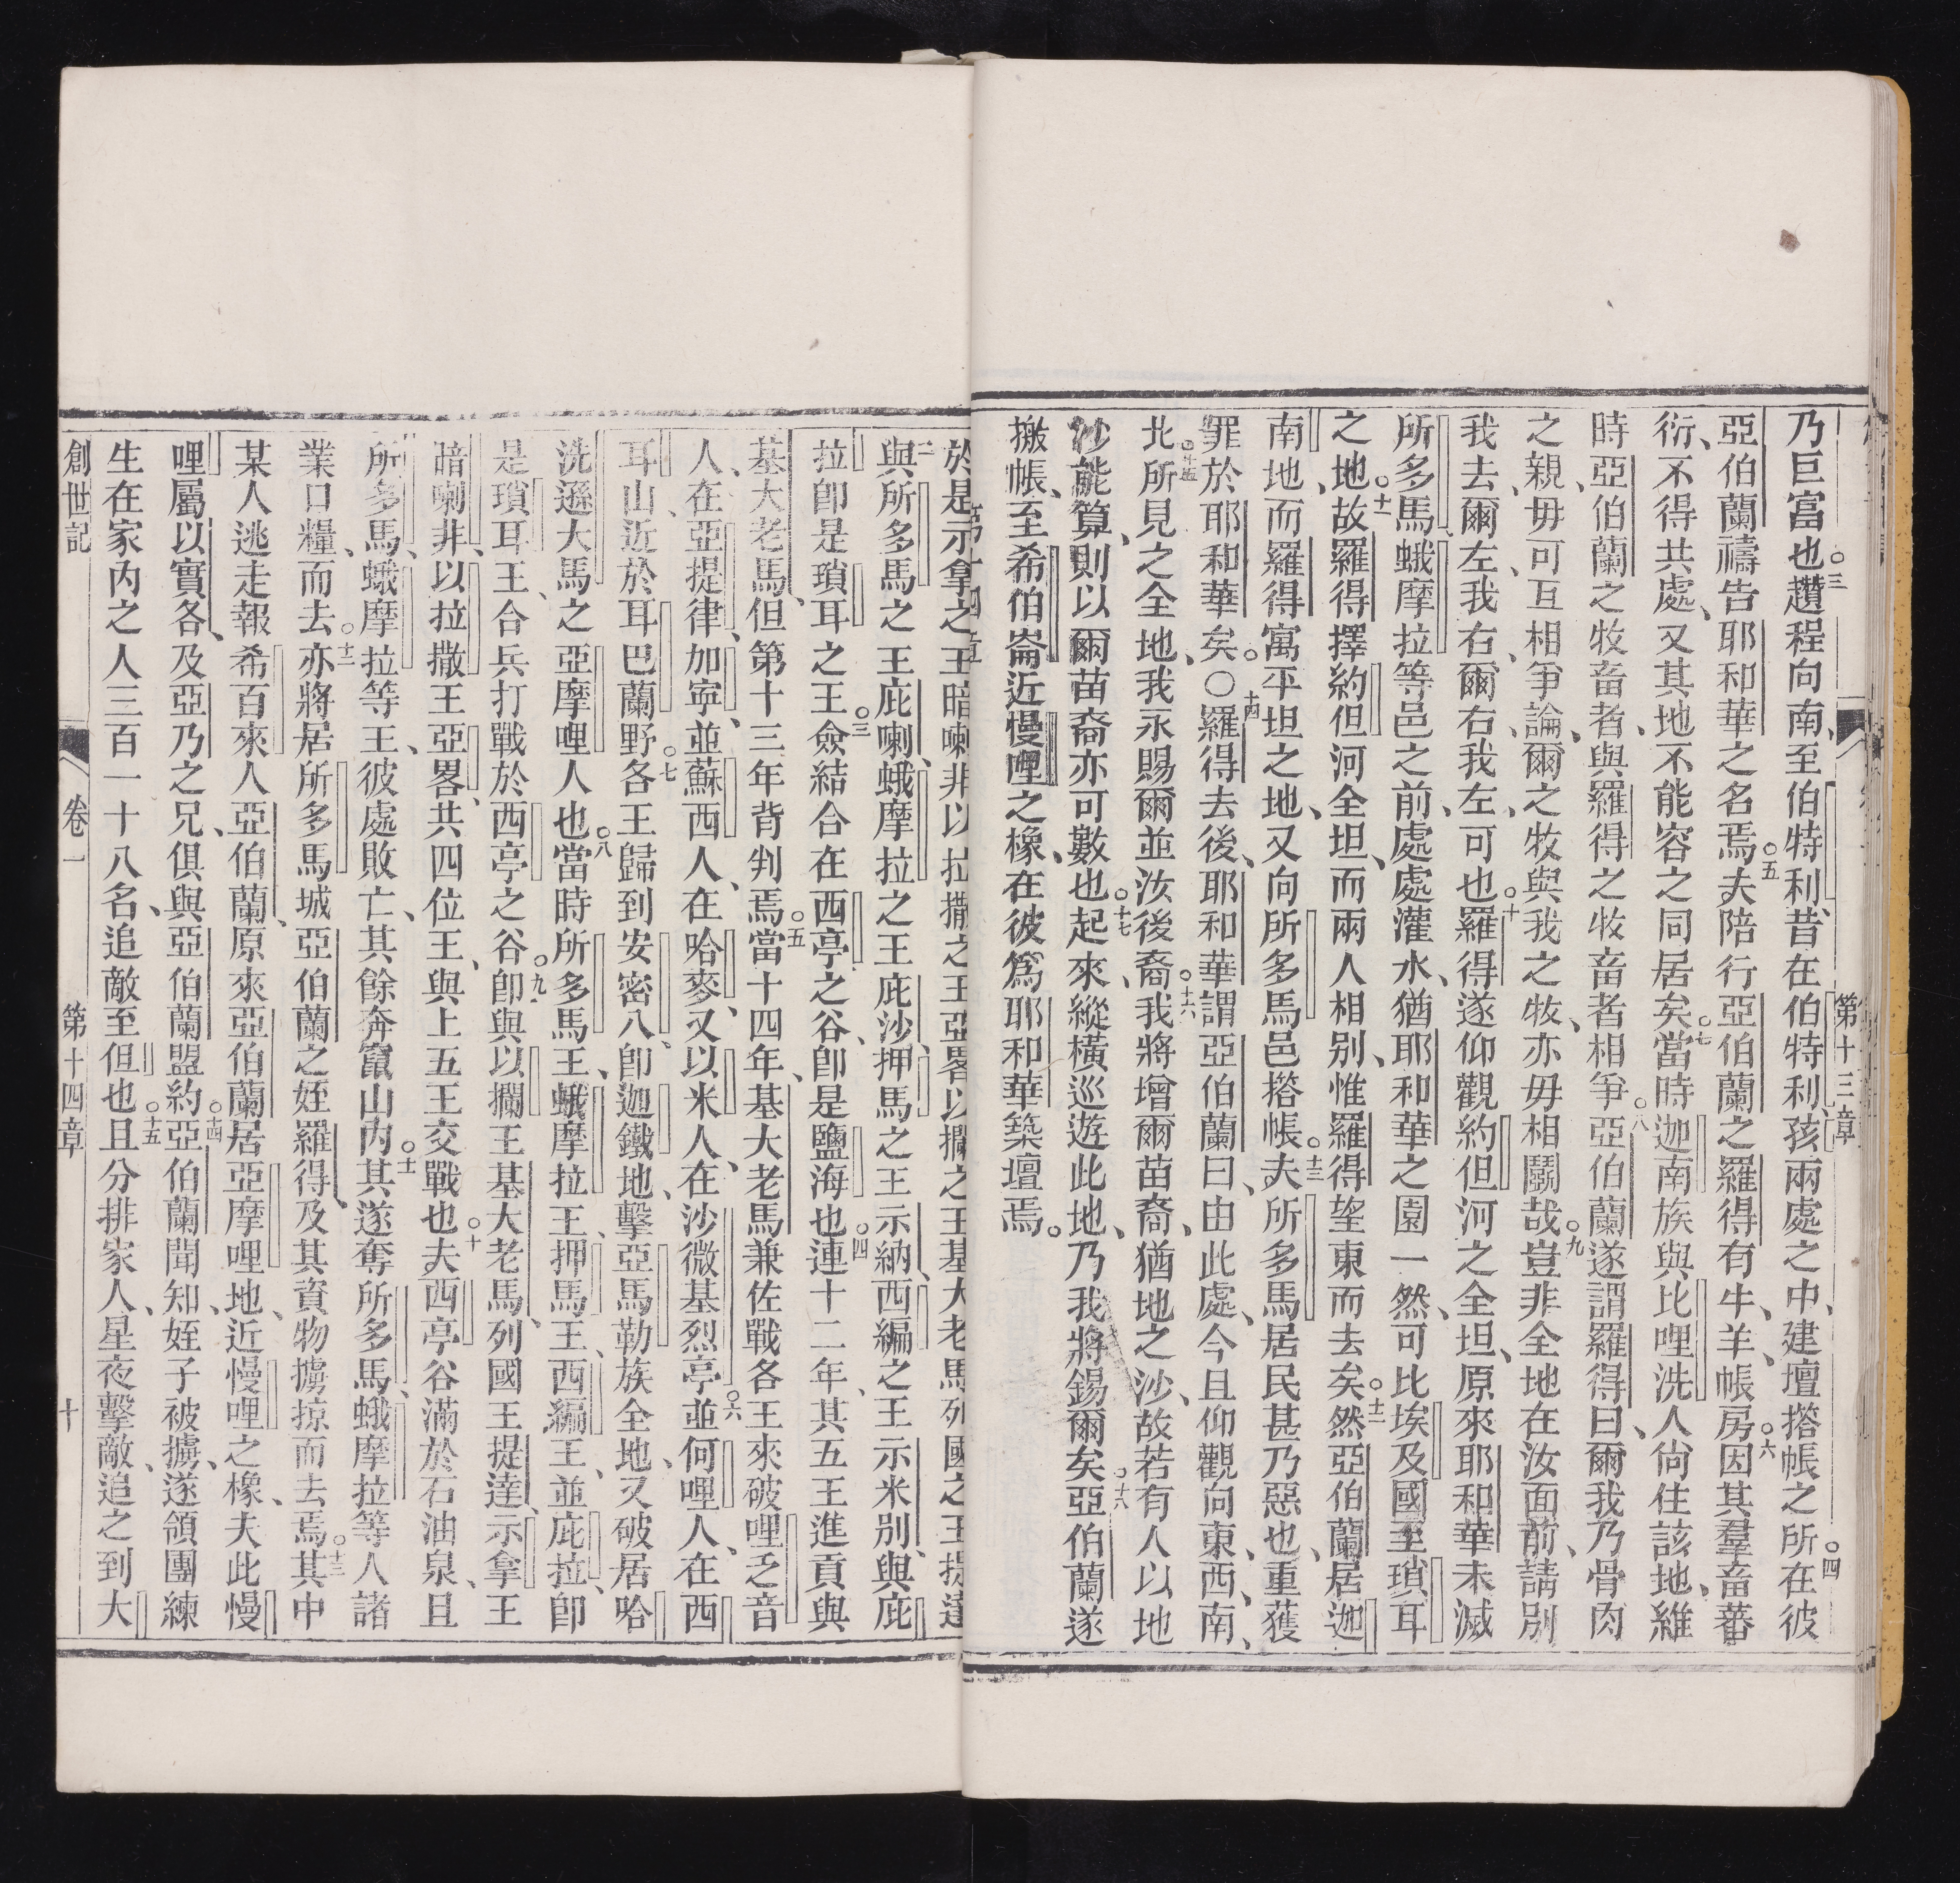 第十三章
乃巨富也〇三趲程向南、至伯特利、昔在伯特利、孩兩處之中、建壇搭帳之所〇四在彼
亞伯蘭禱告耶和華之名焉〇五夫陪行亞伯蘭之羅得有牛、羊、帳房〇六因其羣畜蕃
衍、不得共處、又其地不能容之同居矣〇七當時迦南族與比哩洗人尙住該地、維
時亞伯蘭之牧畜者、與羅得之牧畜者相爭〇八亞伯蘭遂謂羅得曰、爾我乃骨肉
之親、毋可互相爭論、爾之牧與我之牧、亦毋相鬬哉〇九豈非全地在汝面前、請別
我去、爾左、我右、爾右、我左、可也〇十羅得遂仰觀約但河之全坦、原來耶和華未滅
所多馬、蛾摩拉等邑之前、處處灌水、猶耶和華之園一然、可比埃及國至瑣耳
之地、〇十一故羅得擇約但河全坦、而兩人相別、惟羅得望東而去矣〇十二然亞伯蘭居迦
南地、而羅得寓平坦之地、又向所多馬邑搭帳〇十三夫所多馬居民甚乃惡也、重獲
罪於耶和華矣。〇〇十四羅得去後、耶和華謂亞伯蘭曰、由此處、今且仰觀向東、西、南、
北〇十五所見之全地、我永賜爾並汝後裔〇十六我將增爾苗裔、猶地之沙、故若有人以地
沙能算、則以爾苗裔亦可數也〇十七起來、縱橫巡遊此地、乃我將錫爾矣〇十八亞伯蘭遂
搬帳、至希伯崙近慢哩之橡、在彼爲耶和華築壇焉。
第十四章
於是示拿之王暗喇非以拉撒之王亞畧以擱之王基大老馬列國之王提達
二與所多馬之王庇喇、蛾摩拉之王庇沙、押馬之王示納、西編之王示米別、與庇
拉卽是瑣耳之王〇三僉結合在西亭之谷、卽是鹽海也〇四連十二年、其五王進貢與
基大老馬、但第十三年背判焉〇五當十四年、基大老馬兼佐戰各王來破哩乏音
人、在亞提律、加寧、並蘇西人、在哈麥、又以米人、在沙微基烈亭〇六並何哩人、在西
耳山、近於耳巴蘭野〇七各王歸到安密八、卽迦鐵地、擊亞馬勒族全地、又破居哈
洗遜大馬之亞摩哩人也〇八當時所多馬王、蛾摩拉王、押馬王、西編王、並庇拉、卽
是瑣耳王、合兵打戰於西亭之谷〇九卽與以攔王基大老馬、列國王提達、示拿王
暗喇非、以拉撒王亞畧、共四位王、與上五王交戰也〇十夫西亭谷滿於石油泉、且
所多馬、蛾摩拉等王、彼處敗亡、其餘奔竄山內〇十一其遂奪所多馬、蛾摩拉等人諸
業口糧、而去〇十二亦將居所多馬城亞伯蘭之姪羅得、及其資物擄掠而去焉〇十三其中
某人逃走報希百來人亞伯蘭、原來亞伯蘭居亞摩哩地、近慢哩之橡、夫此慢
哩屬以實各、及亞乃之兄、俱與亞伯蘭盟約〇十四亞伯蘭聞知、姪子被擄、遂領團練
生在家內之人三百一十八名、追敵至但也〇十五且分排家人、星夜擊敵、追之到大
創世記 卷一 第十四章 十